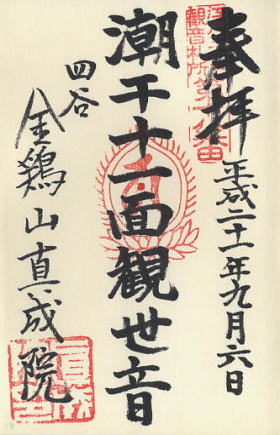 奉拝
観音札所第
平成二十一年九月六日
潮干十一面観世音
四谷
金鶏山真成院